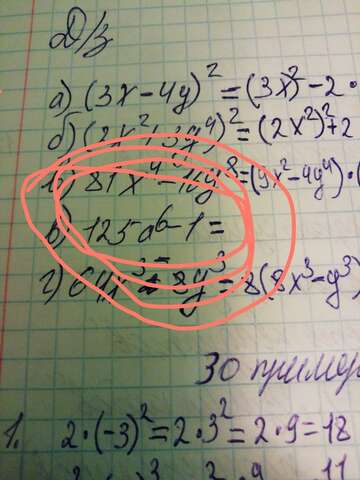 Д/з
а) (3x-4y)² = (3x)² - 2 ·
б) (2x² + 3y⁴)² = (2x²)² + 2
81x⁴ - 16y⁸ = (9x² - 4y⁴) · (
в) 125a⁶ - 1 =
г) 64x³ - 8y³ = 8(8x³ - y³)
30 пример
1. 2·(-3)² = 2·3² = 2·9 = 18